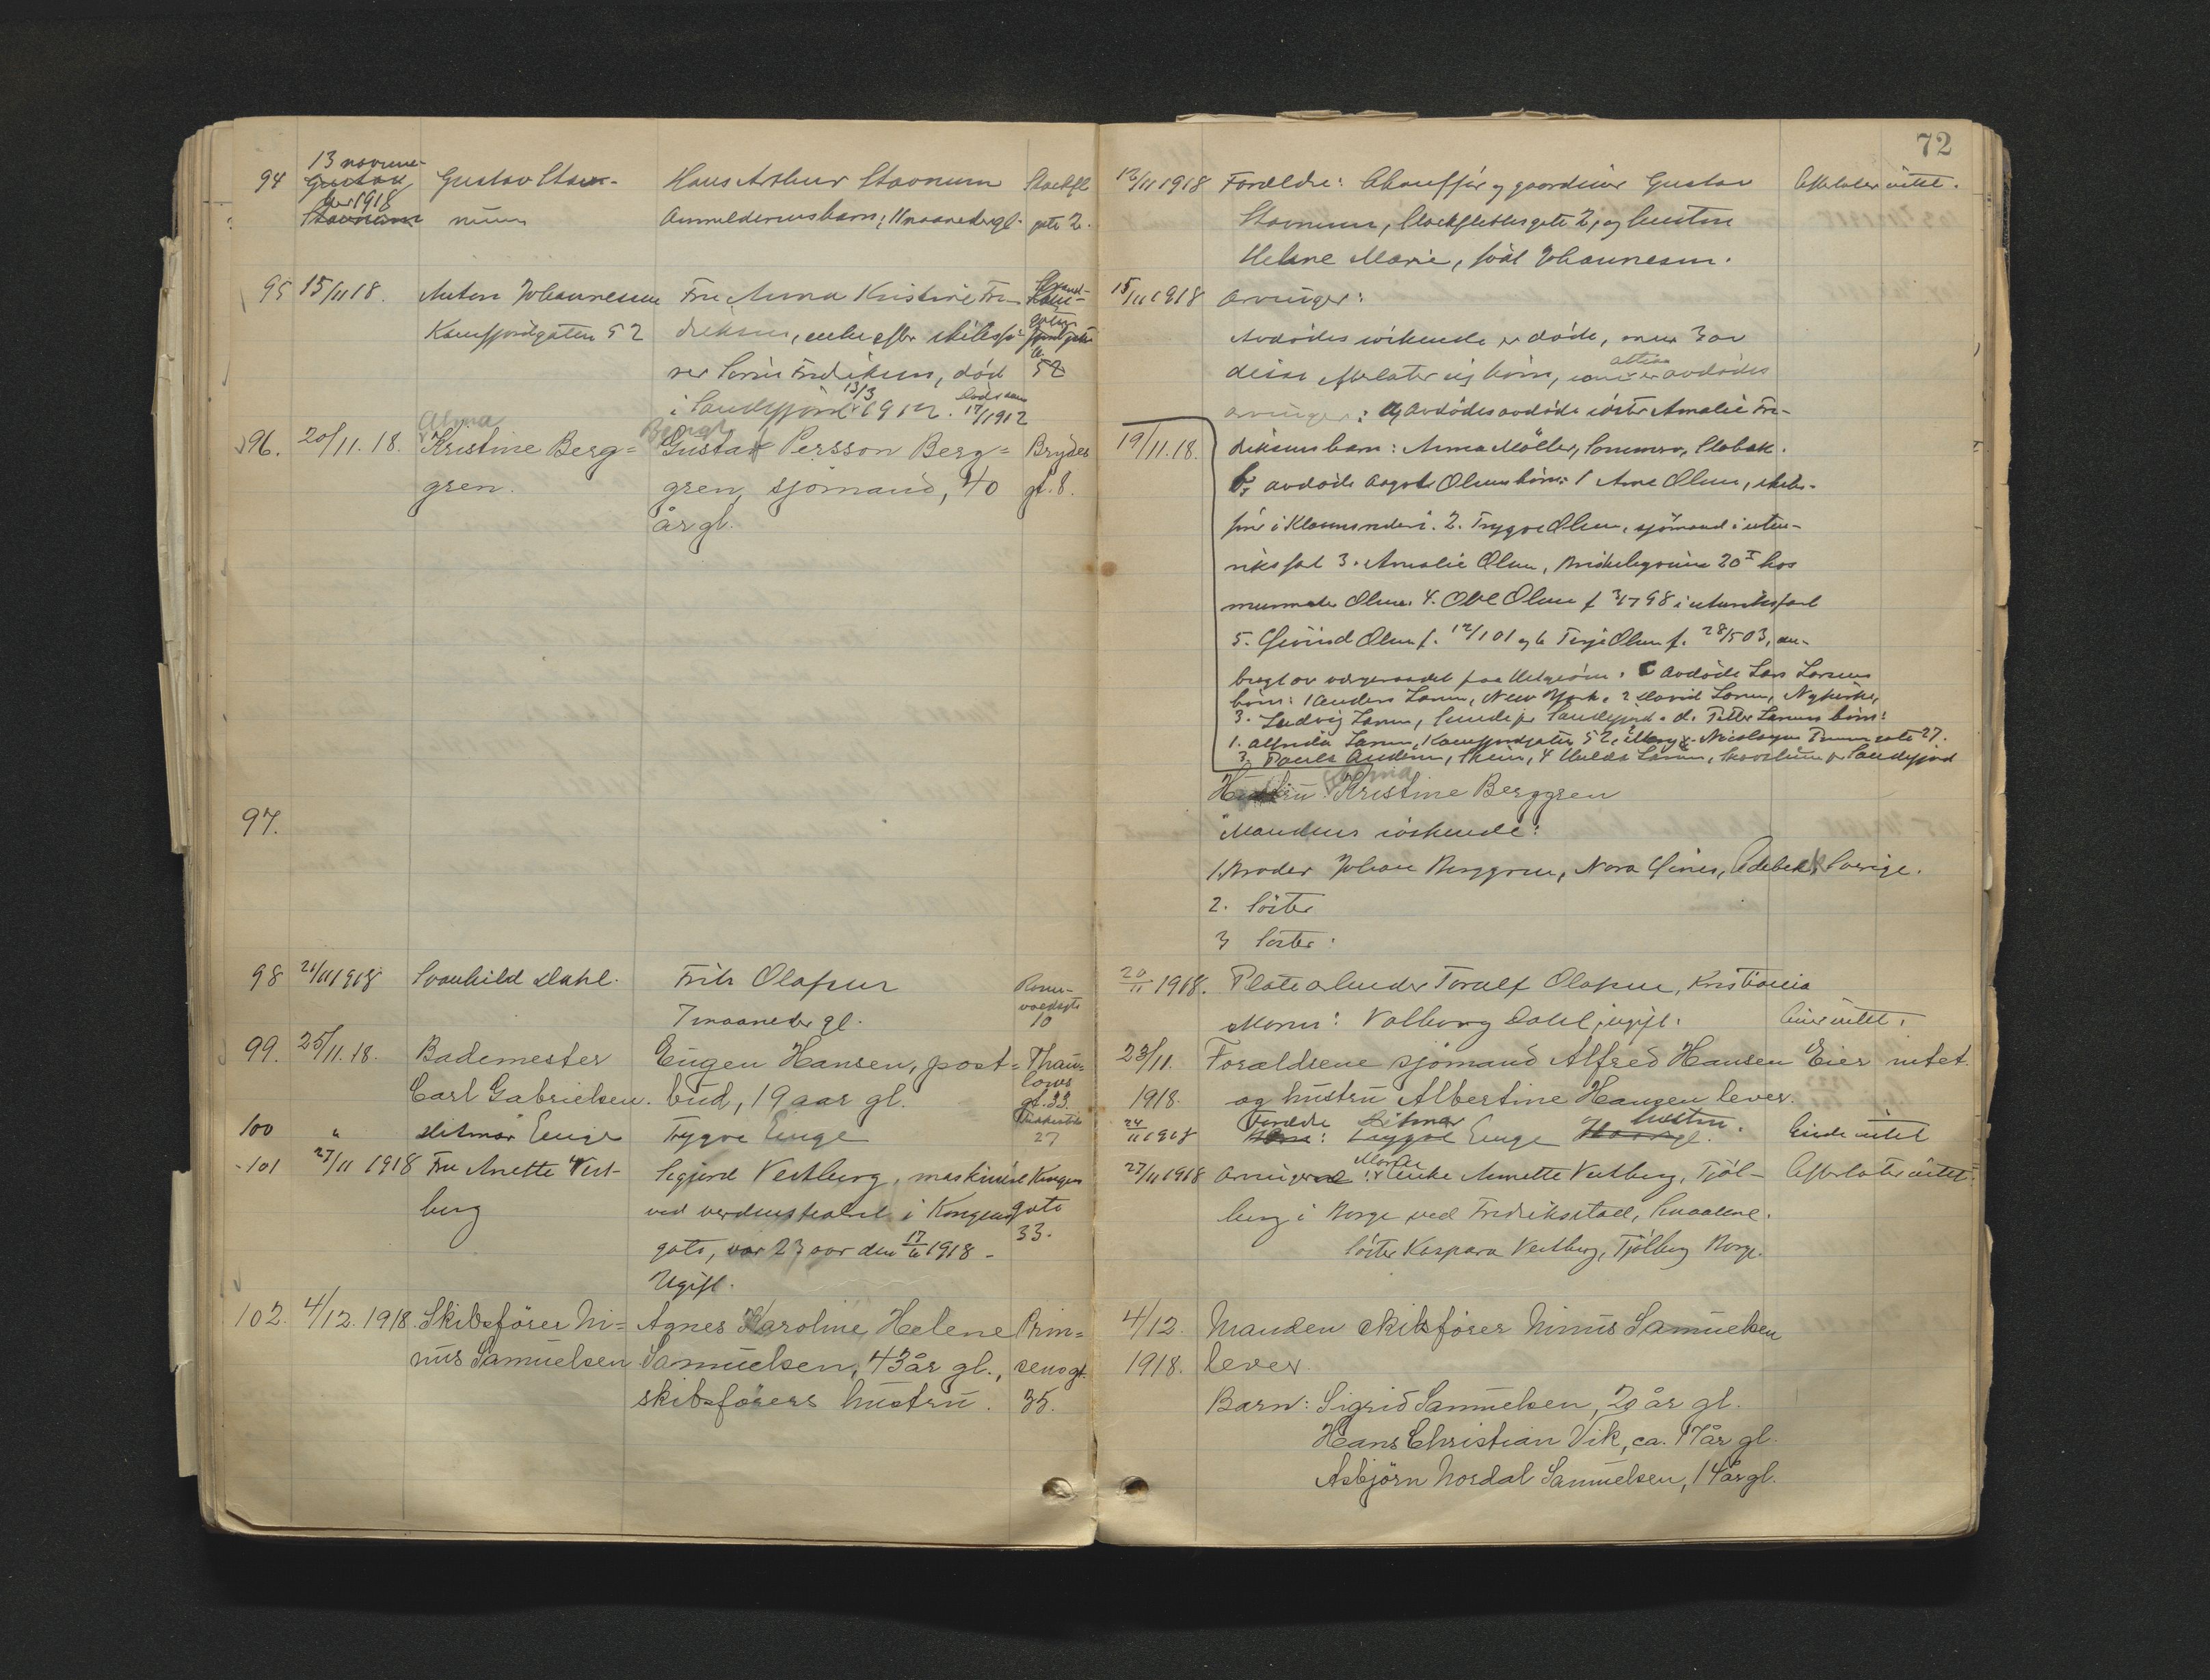 72
94
13 novem-
Gustav
ber 1918
Stavnum
Gustav Stav-
num
Hans Arthur Stavnum
Anmelderens barn, 11 maaneder gl.
Stockfl.
gate 2.
12/11 1918
Forældre: Chauffør og gaardeier Gustav
Stavnum, Stockflethsgate 2, og hustru
Helene Marie, født Johannesen.
Efterlater intet.
95 15/11 18.
Anton Johannesen
Kamfjordgaten 52
Fru Anna Kristine Fre-
driksen, enke efter skibsfø-
rer Sørin Fredriksen, død
i Sandefjord 13/3 1912.
17/1912
52
15/11 1918
Arvinger:
Avdødes søskende er døde, men 3 av
disse efterlater sig børn, som er avdødes
arvinger: a) avdødes avdøde søster Amalie Fre-
driksens barn: Anna Möller,
b, avdøde Aagot Olsens børn: 1 Arne Olsen, skibs-
fører i 2. Trygve Olsen, sjømand i uten-
riksfart 3. Amalie Olsen, 20 I hos
Olsen 4. Ole Olsen f 3/7 98 i utenriksfart
5. Eivind Olsen f. 12/1 01 og 6 Terje Olsen f. 28/5 03, an-
bragt av vergeraadet paa Helgeøen. C avdøde Lars Larsens
børn: 1 Anders Larsen, New York. 2 David Larsen, Nykirke,
3. Ludvig Larsen, Sandefjord. d. Petter Larsens børn:
1. Alfrida Larsen, Kamfjordgaten 52, gate 27.
3. Paula Andersen, Skien, 4 Hulda Larsen, Sandefjord
96. 20/11. 18.
Alma
Kristine Berg=
gren.
Bengt
Gustaf Persson Berg=
gren, sjömand, 40
år gl.
Brydes
gt. 8.
19/11. 18.
Alma
Hustru Kristine Berggren
97.
Mandens søskende:
1. Broder Johan Berggren, Nora Sverige.
2. Søster
3 Søster:
98 21/11 1918
Svanhild Dahl.
Fritz Olafsen
7 maaneder gl.
Rønn-
voldsgt.
10
20/11 1918.
Toralf Olafsen, Kristiania
Moren: Valborg Dahl, ugift.
Eier intet.
99. 25/11. 18.
Bademester
Carl Gabrielsen.
Eugen Hansen, post=
bud, 19 aar gl.
Thau=
lows
gt. 33.
23/11.
1918.
Forældrene sjömand Alfred Hansen
og hustru Albertine Hansen lever.
Eier intet.
100 "
Ditmar Enge
Trygve Enge
27
24/11 1918
Forældre Ditmar
Trygve Enge og hustru.
Eiede intet
101 27/11 1918
Fru Anette Vest-
berg
Sigfred Vestberg, maskinist
ved verdensteatret i Kongens
gate, var 23 aar den 17/6 1918 -
Ugift.
Kongens
gate
33.
27/11 1918
Moren
Arvinger: enke Annette Vestberg, Tjøl-
berg i Borge ved Fredriksstad, Smaalene.
Søster Kaspara Vestberg, Tjølberg Borge.
Efterlater intet.
102. 4/12. 1918
Skibsförer Ni=
nus Samuelsen
Agnes Karoline Helene
Samuelsen, 43 år gl.,
skibsförers hustru.
Prin=
sensgt.
35.
4/12.
1918.
Manden skibsförer Ninus Samuelsen
lever.
Barn: Sigrid Samuelsen, 20 år gl.
Hans Christian Vik, ca. 17 år gl.
Asbjörn Nordal Samuelsen, 14 år gl.